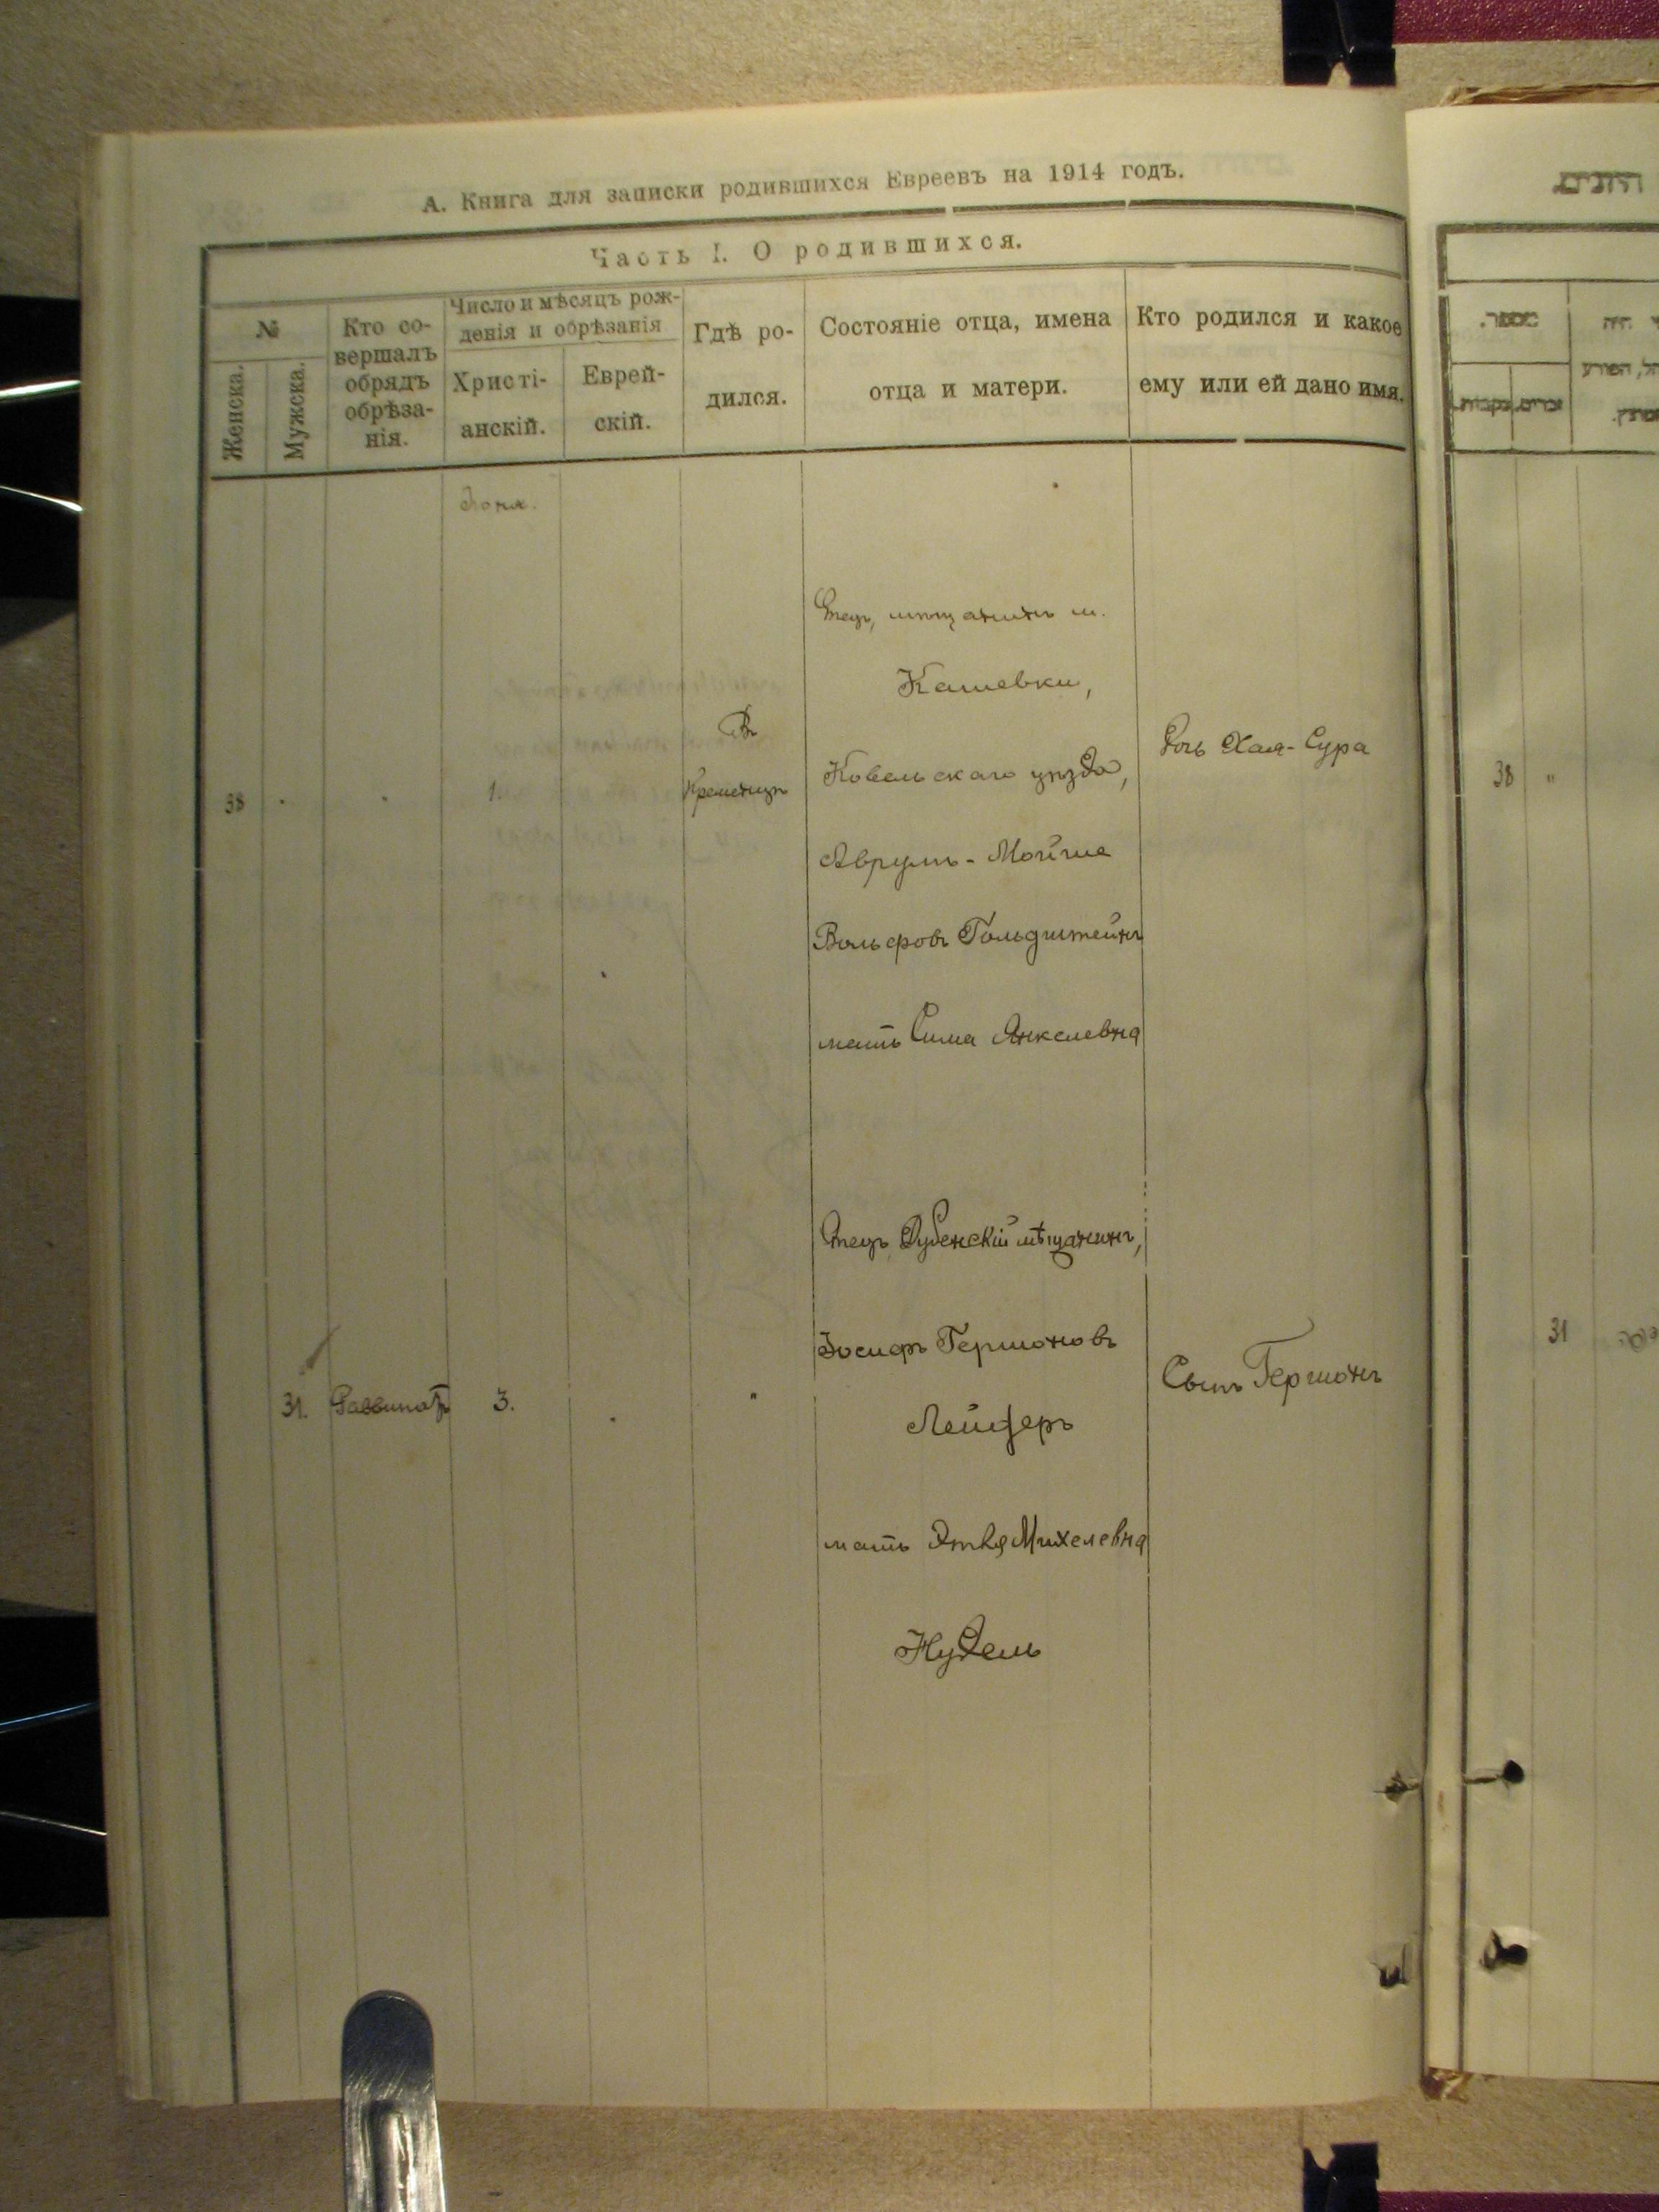 А. Книга для записки родившихся Евреевъ на 1914 годъ.
Часть I. О родившихся.
№
Женска.
Мужска.
Кто со-
вершалъ
обрядъ
обрѣза-
нія.
Число и мѣсяцъ рож-
денія и обрѣзанія
Христі-
анскій.
Еврей-
скій.
Гдѣ ро-
дился.
Состояніе отца, имена
отца и матери.
Кто родился и какое
ему или ей дано имя.
38
1.
Въ
Кременцѣ
Отецъ, мѣщанинъ м.
Кашевки,
Ковельскаго уѣзда,
Аврумъ-Мойше
Вольфовъ Гольдштейнъ
мать Сима Янкелевна
Дочь Хая-Сура
31.
Раввинатъ
3.
"
Отецъ Дубенскій мѣщанинъ,
Іосифъ Гершоновъ
Лейферъ
мать Этля Михелевна
Нудель
Сынъ Гершонъ
מספר.
זכרים
נקבות.
38 "
31